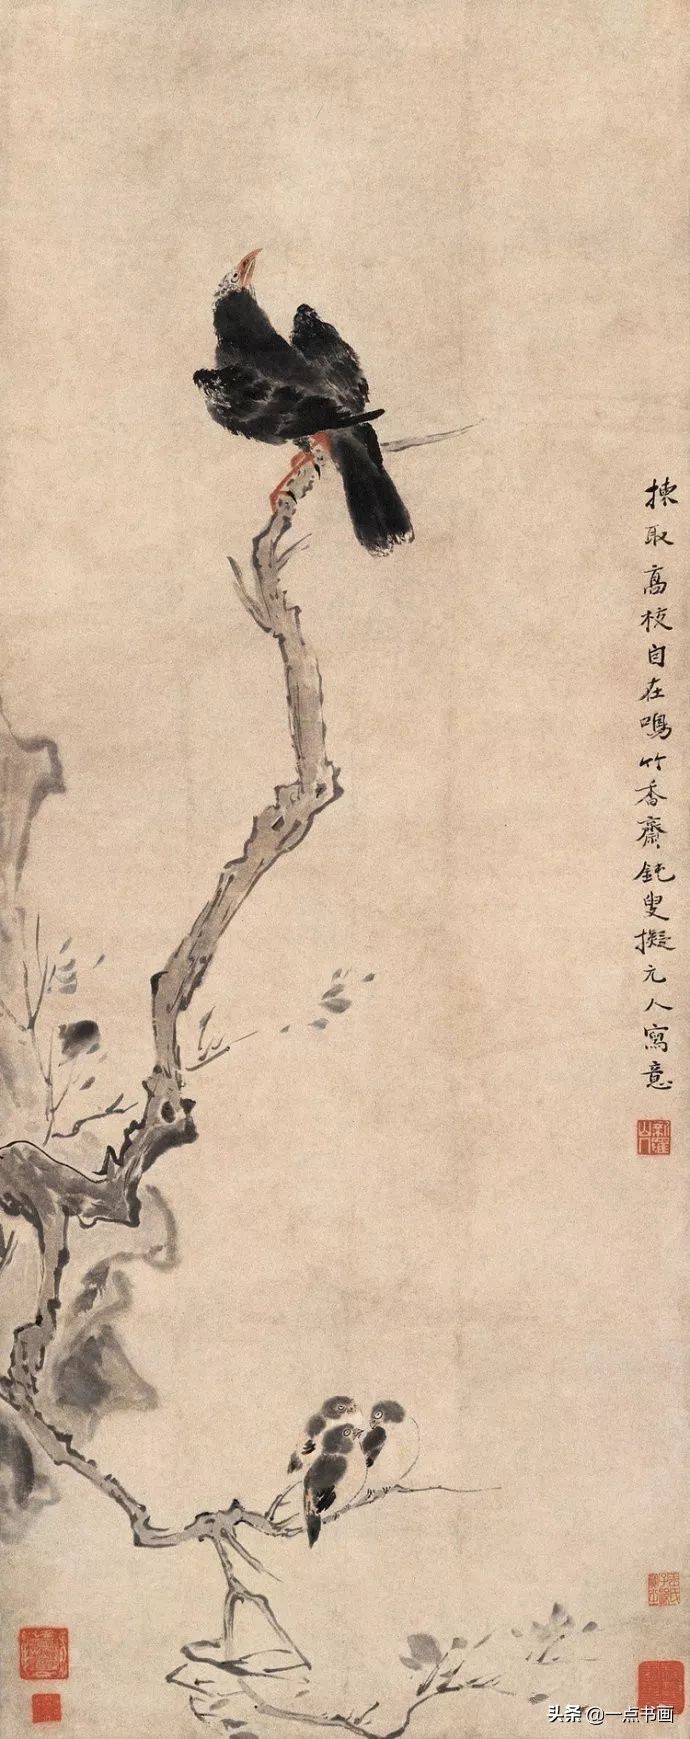 揀取高枝自在鳴竹香齋鈍叟擬元人寫意
新羅山人
头条 @一点书画